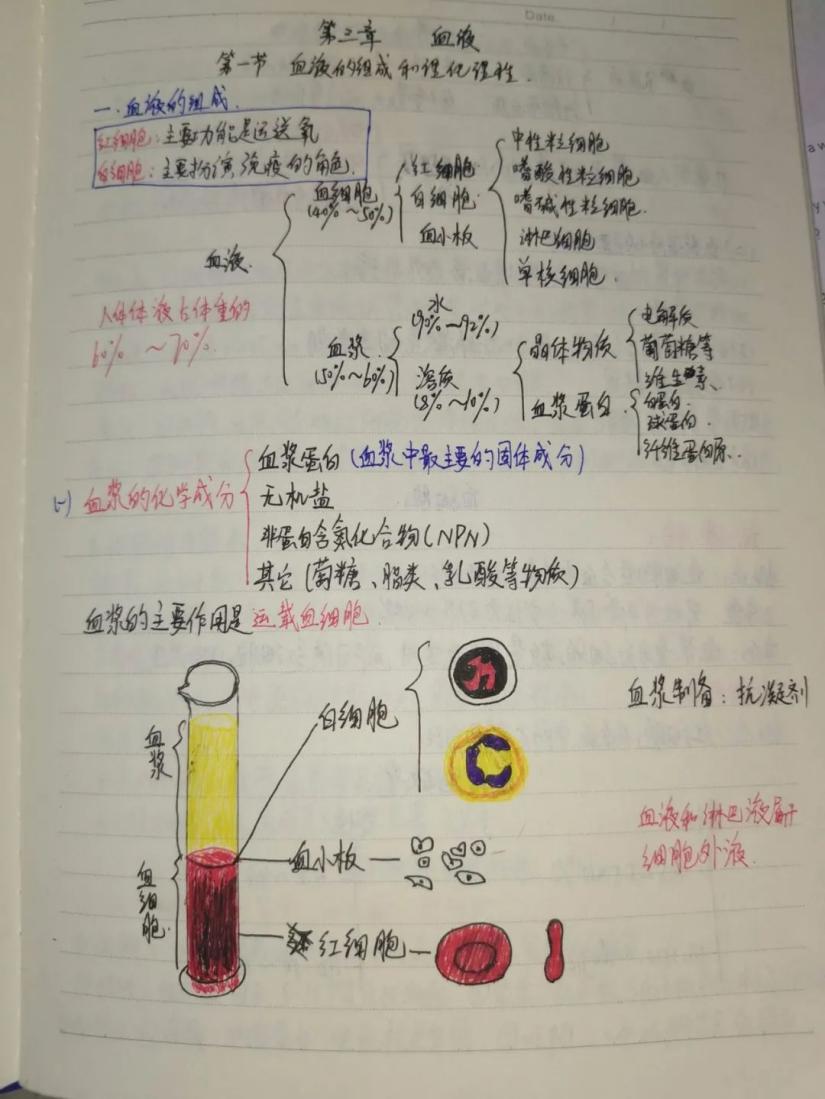 Date
第三章 血液
第一节 血液的组成和理化理性.
一.血液的组成.
红细胞:主要功能是运送氧
白细胞:主要扮演免疫的角色.
血液.
血细胞
(40%~50%)
红细胞
白细胞
血小板
中性粒细胞
嗜酸性粒细胞
嗜碱性粒细胞.
淋巴细胞
单核细胞.
人体体液占体重的
60% ~70%.
血浆.
(50%~60%)
水
(90%~92%)
溶质
(8%~10%)
晶体物质
血浆蛋白.
电解质
葡萄糖等
维生素、
白蛋白.
球蛋白.
纤维蛋白原..
(一) 血浆的化学成分
血浆蛋白(血浆中最主要的固体成分)
无机盐
非蛋白含氮化合物(NPN)
其它(葡糖、脂类、乳酸等物质)
血浆的主要作用是运载血细胞.
血浆
血细胞.
白细胞
血小板
红细胞
血浆制备:抗凝剂
血液和淋巴液属于
细胞外液.